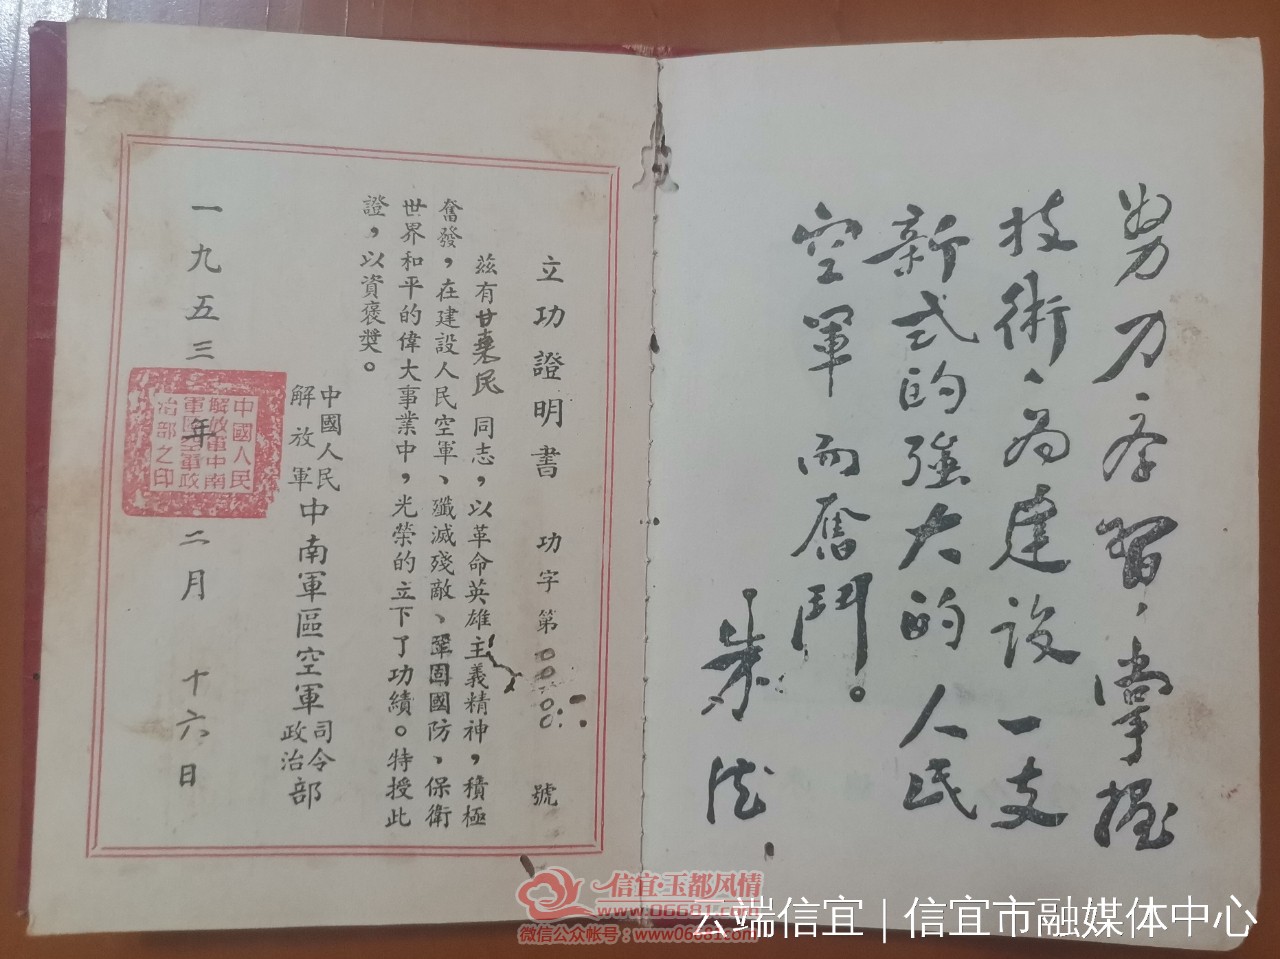 努力学習，掌握
技術、為建设一支
新式的強大的人民
空軍而奮鬥。
朱德
立功證明書 功字第 號
茲有甘棄民同志，以革命英雄主義精神，積極
奮發，在建設人民空軍、殲滅殘敵、鞏固國防、保衛
世界和平的偉大事業中，光榮的立下了功績。特授此
證，以資褒獎。
中國人民解放軍中南軍區空軍司令部政治部
一九五三年二月十六日
中國人民
解放軍中南
軍區空軍政
治部之印
信宜·玉都风情
www.06681.com
微信公众帐号：www06681com
云端信宜｜信宜市融媒体中心